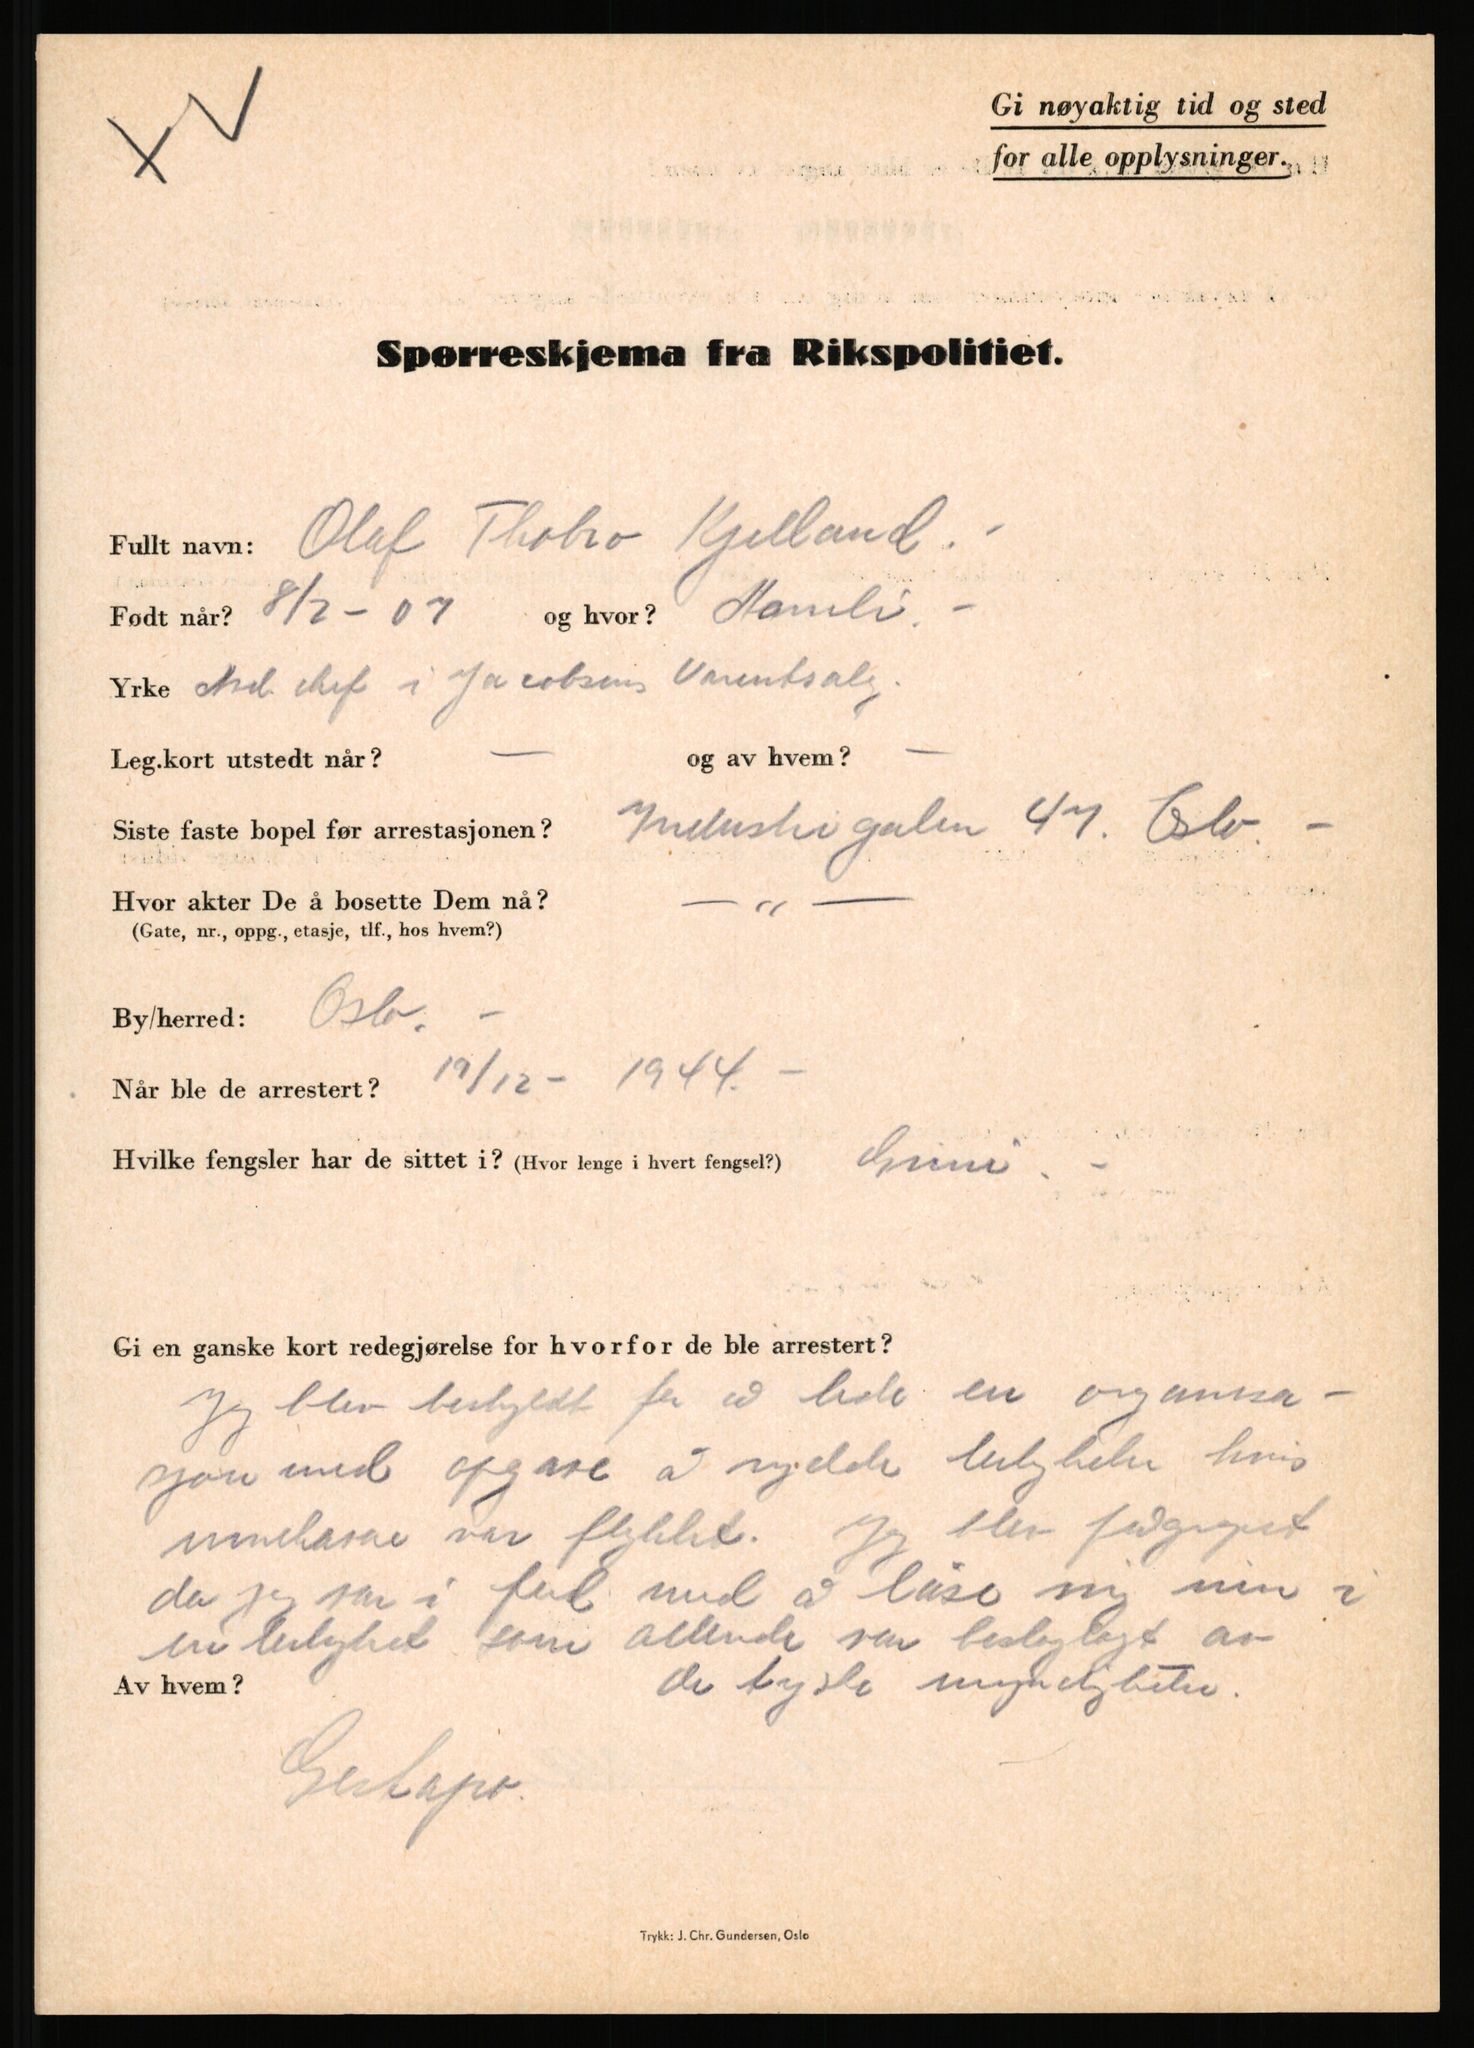 Gi nøyaktig tid og sted
for alle opplysninger.
Spørreskjema fra Rikspolitiet.
Fullt navn: Olaf Thobro Kjelland. -
Født når? 8/2 - 07 og hvor? Hamli. -
Yrke chef i Jacobsens Vareutsalg.
Leg.kort utstedt når? — og av hvem? —
Siste faste bopel før arrestasjonen? Industrigaten 47. Oslo. -
Hvor akter De å bosette Dem nå? — " —
(Gate, nr., oppg., etasje, tlf., hos hvem?)
By/herred: Oslo. -
Når ble de arrestert? 19/12 - 1944. -
Hvilke fengsler har de sittet i? (Hvor lenge i hvert fengsel?) Grini. -
Gi en ganske kort redegjørelse for hvorfor de ble arrestert?
Jeg blev beskyldt for å lede en organisa-
sjon med opgave å rydde leiligheter hvis
innehavere var flyktet. Jeg blev pågrepet
da jeg var i ferd med å låse mig inn i
en leilighet som allerede var beslaglagt av
Av hvem? de tyske myndigheter.
Gestapo.
Trykk: J. Chr. Gundersen, Oslo